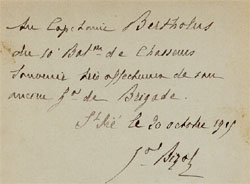 Au Capitaine Bertholus
du 10e Baton de Chasseurs
Souvenir très affectueux de son
ancien Gal de Brigade.
St Dié le 20 octobre 19
Gal Bizot